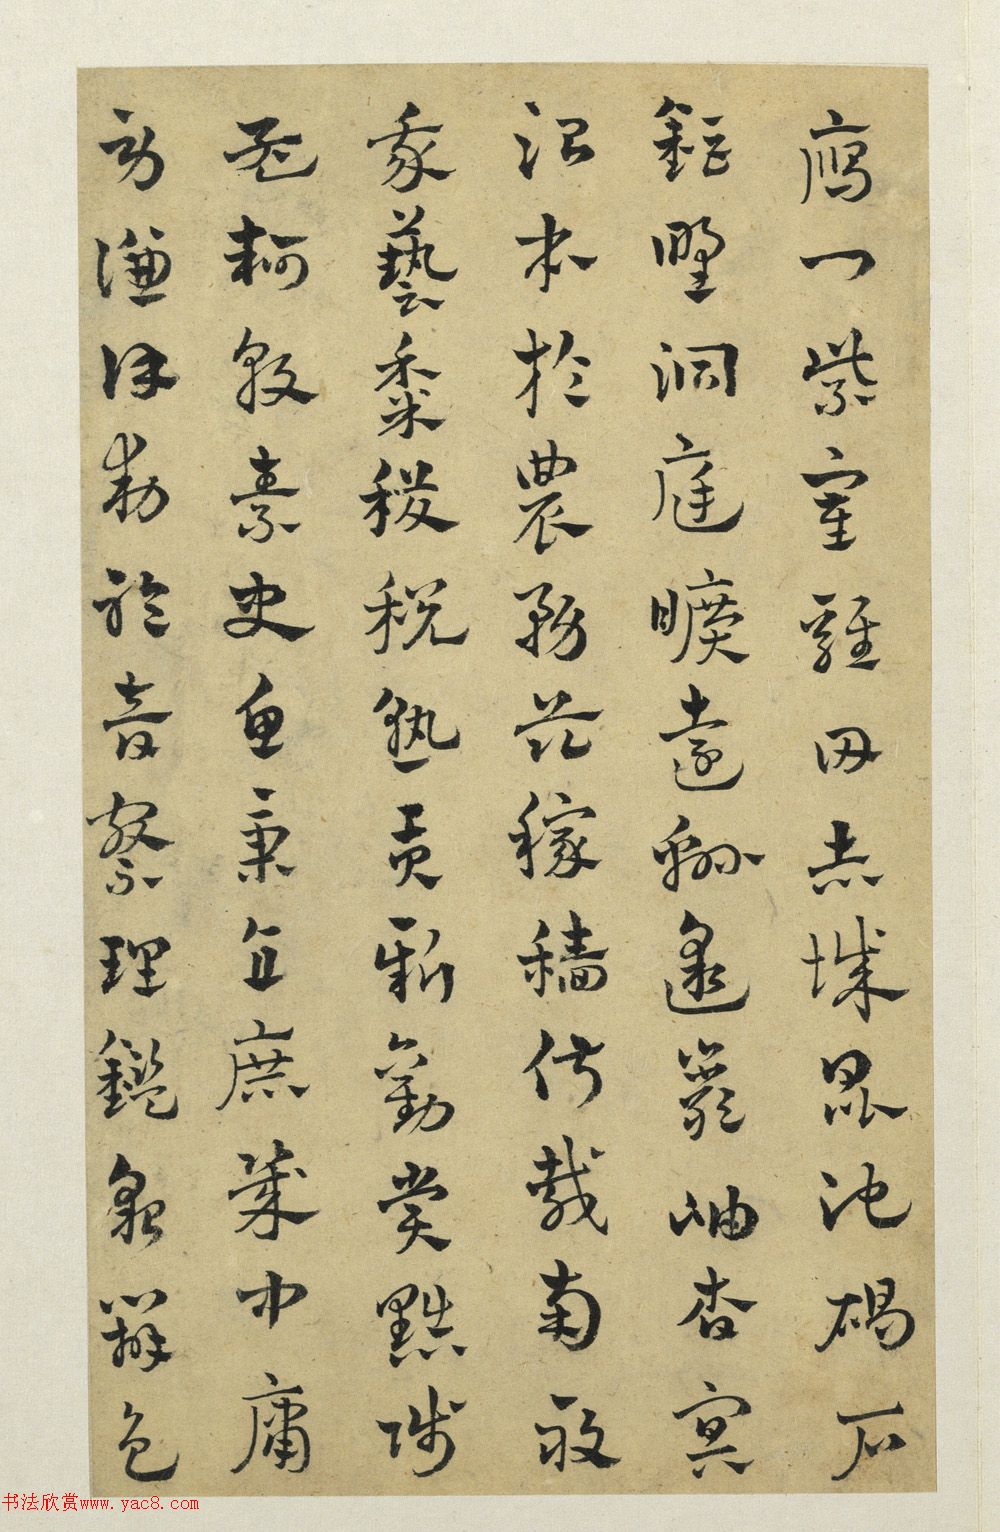 鴈門紫塞雞田赤城昆池碣石
鉅野洞庭曠遠綿邈巖岫杳冥
治本於農務茲稼穡俶載南畝
我藝黍稷稅熟貢新勸賞黜陟
孟軻敦素史魚秉直庶幾中庸
勞謙謹敕聆音察理鑑貌辨色
书法欣赏www.yac8.com